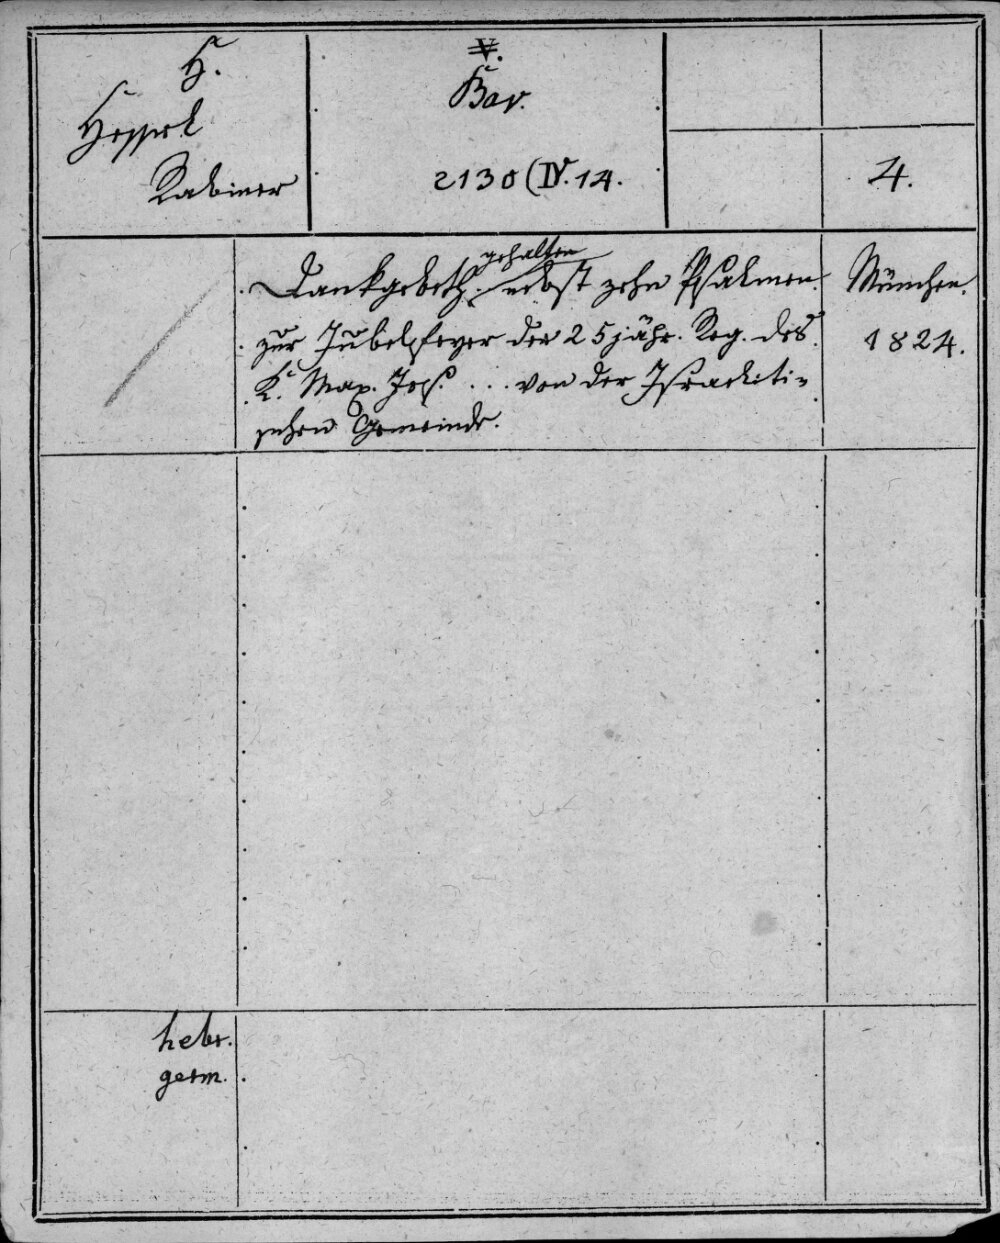 H.
Hessel
Rabiner
V.
Bav.
2130 (IV. 14.
4.
gehalten
Dankgebeth nebst zehn Psalmen
zur Jubelfeyer der 25jähr. Reg. des
K. Max. Jos. ... von der Israeliti-
schen Gemeinde.
München.
1824.
hebr.
germ.